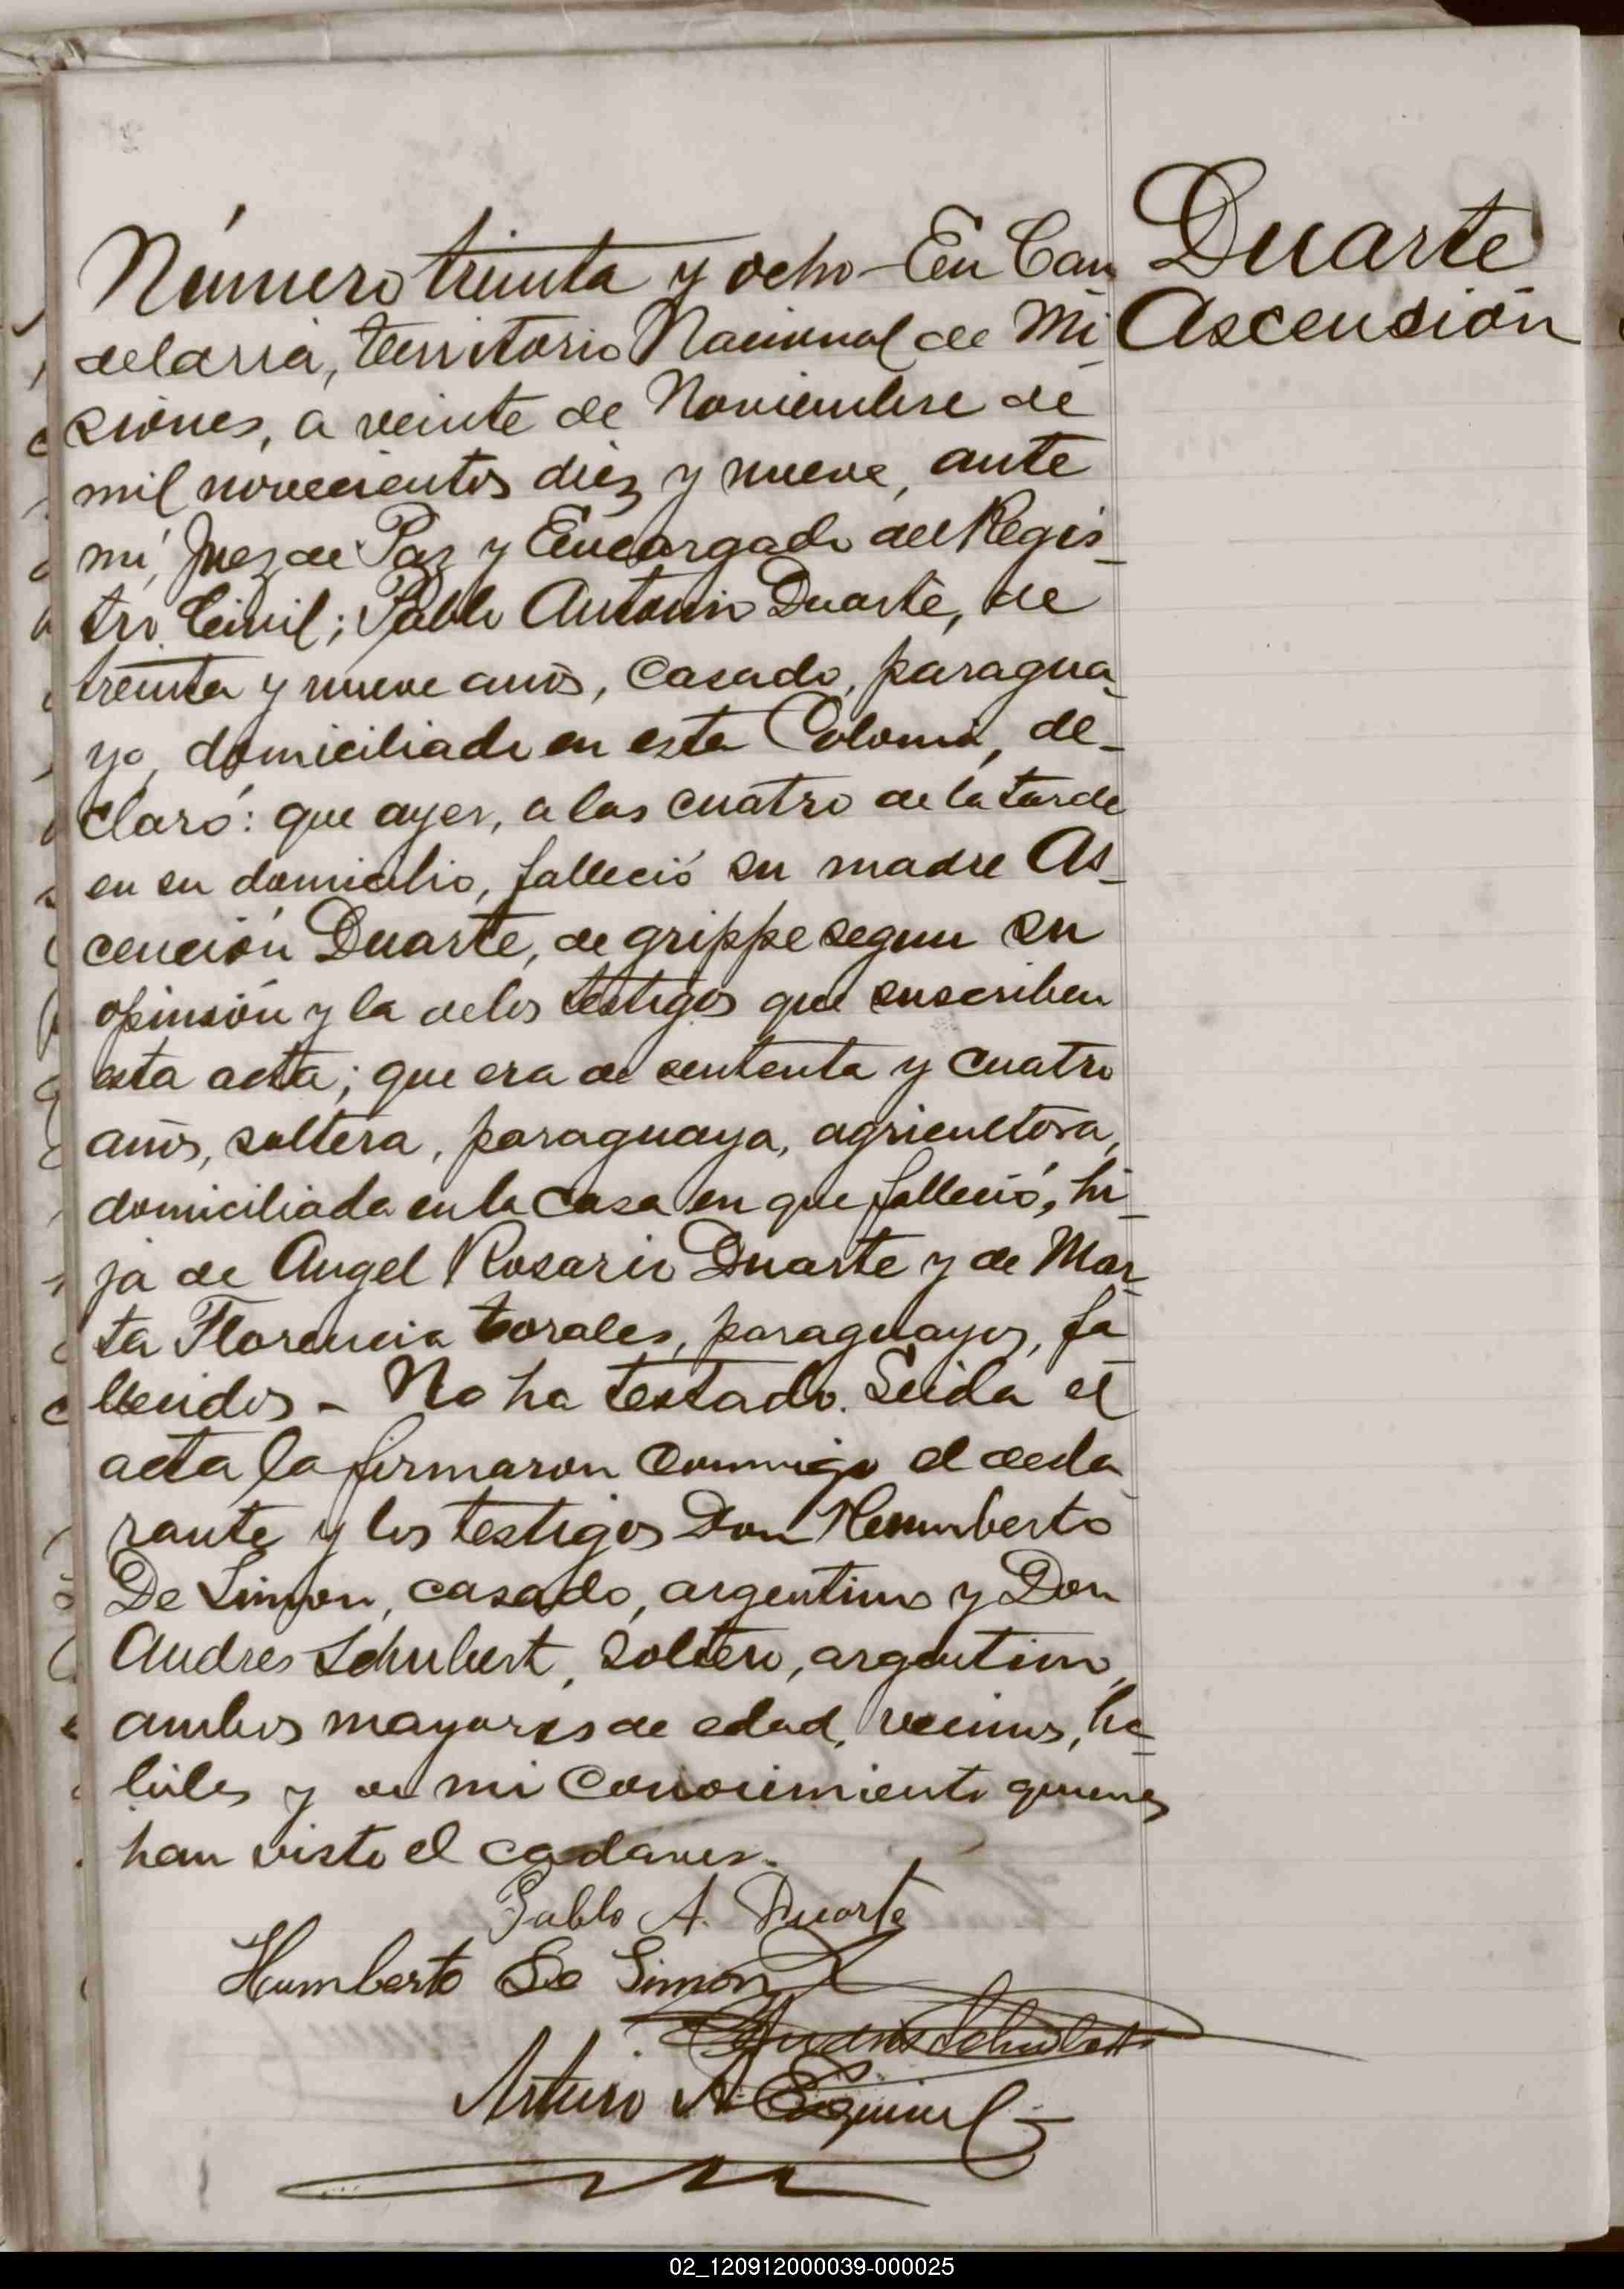 Número treinta y ocho - En Can
delaria, territorio Nacional de Mi
siones, a veinte de Noviembre de
mil novecientos diez y nueve, ante
mi, Juez de Paz y Encargado del Regis-
tro Civil; Pablo Antonio Duarte, de
treinta y nueve años, casado, paragua-
yo, domiciliado en esta Colonia, de-
claró: que ayer, a las cuatro de la tarde
en su domicilio, falleció su madre As-
cención Duarte, de grippe segun su
opinión y la de los testigos que suscriben
esta acta; que era de y cuatro
años, soltera, paraguaya, agricultora,
domiciliada en la casa en que falleció, hi-
ja de Angel Rosario Duarte y de Mar-
ta Florencia Torales, paraguayos, fa
llecidos - No ha testado. Leida el
acta la firmaron conmigo el decla
rante y los testigos Don Humberto
De Simon, casado, argentino y Don
Andres Schubert, soltero, argentino,
ambos mayores de edad, vecinos, há-
biles y de mi conocimiento quienes
han visto el cadaver.
Duarte
Ascensión
Pablo A. Duarte
Humberto De Simon
Andrés Schubert
Arturo A.
02_120912000039-000025